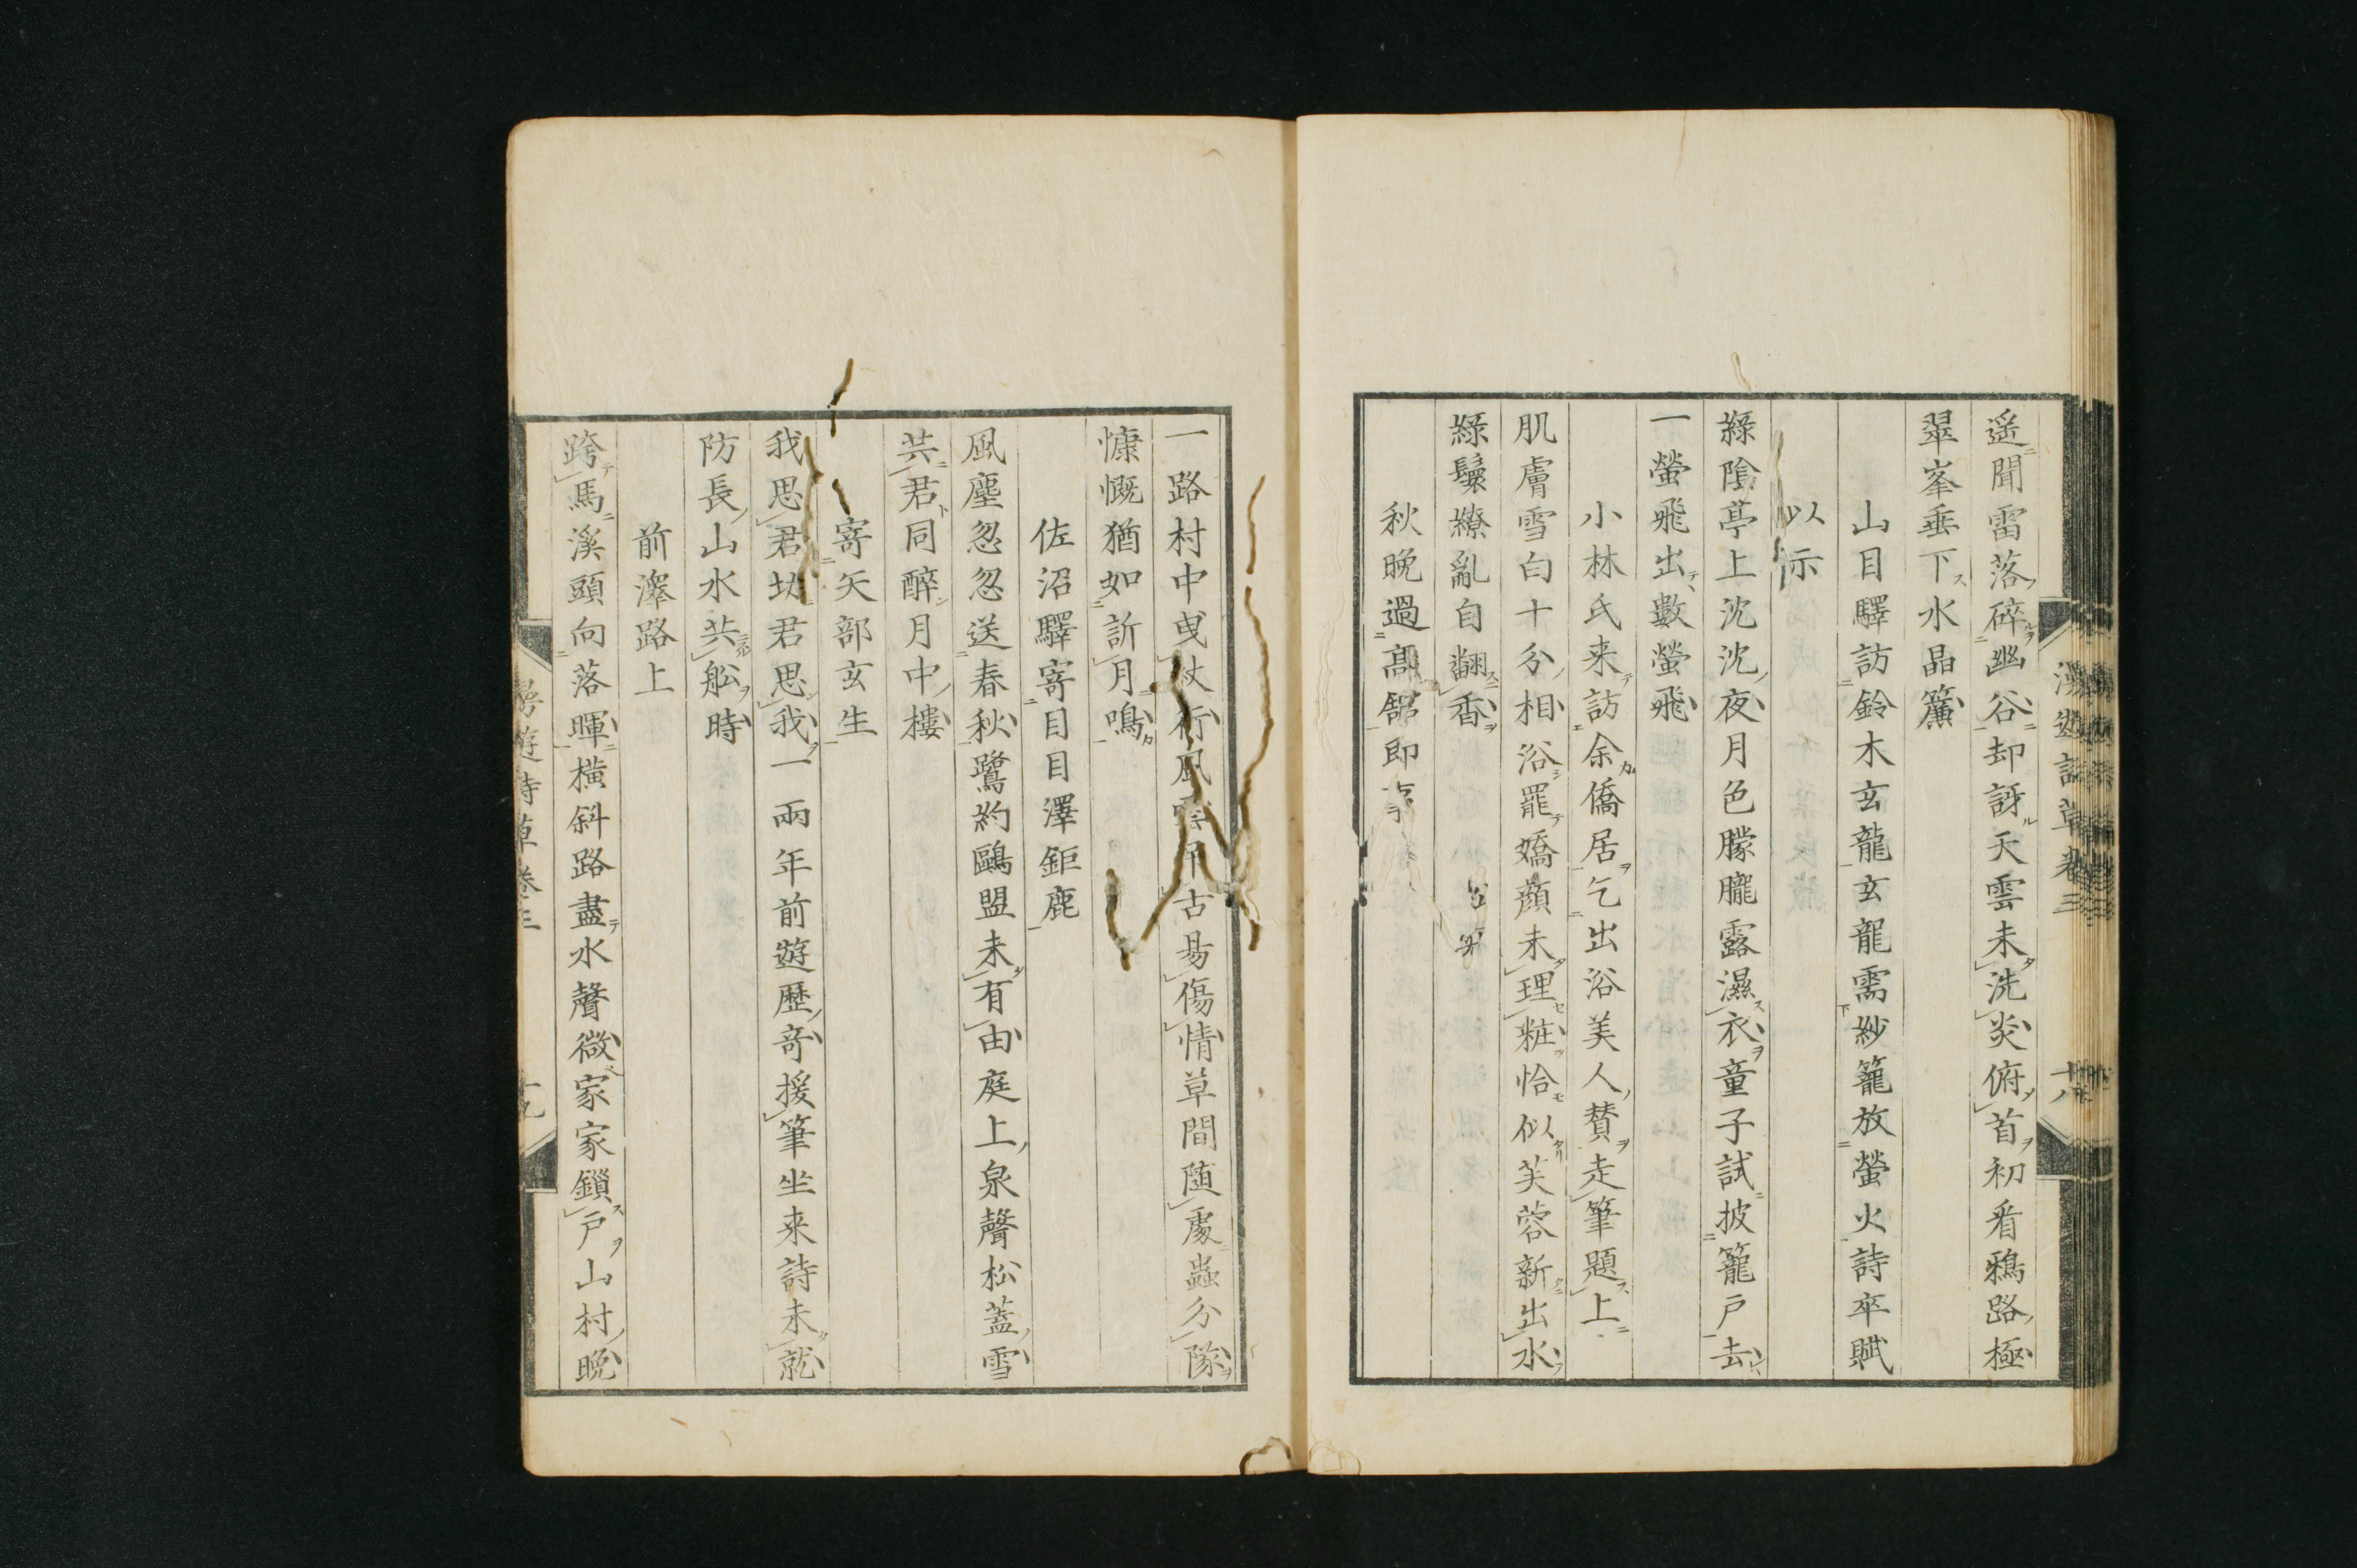 遥聞雷落碎幽谷却訝天雲未洗炎俯首初看鴉路極
翠峯垂下水晶簾
山目驛訪鈴木玄龍玄龍需紗籠放螢火詩卒賦
以示
綠陰亭上沈沈夜月色朦朧露濕衣童子試披籠戸去
一螢飛出數螢飛
小林氏来訪余僑居乞出浴美人賛走筆題上
肌膚雪白十分相浴罷嬌顔未理粧恰似芙蓉新出水
綠鬟繚亂自翻香
秋晩過髙舘即事
一路村中曳杖行風雲弔古易傷情草間随處蟲分隊
慷慨猶如訴月鳴
佐沼驛寄目目澤鉅鹿
風塵忽忽送春秋鷺約鷗盟未有由庭上泉聲松蓋雪
共君同醉月中樓
寄矢部玄生
我思君坊君思我一兩年前遊歴奇援筆坐来詩未就
防長山水共舩時
前澤路上
跨馬溪頭向落暉橫斜路盡水聲微家家鎖戸山村晩